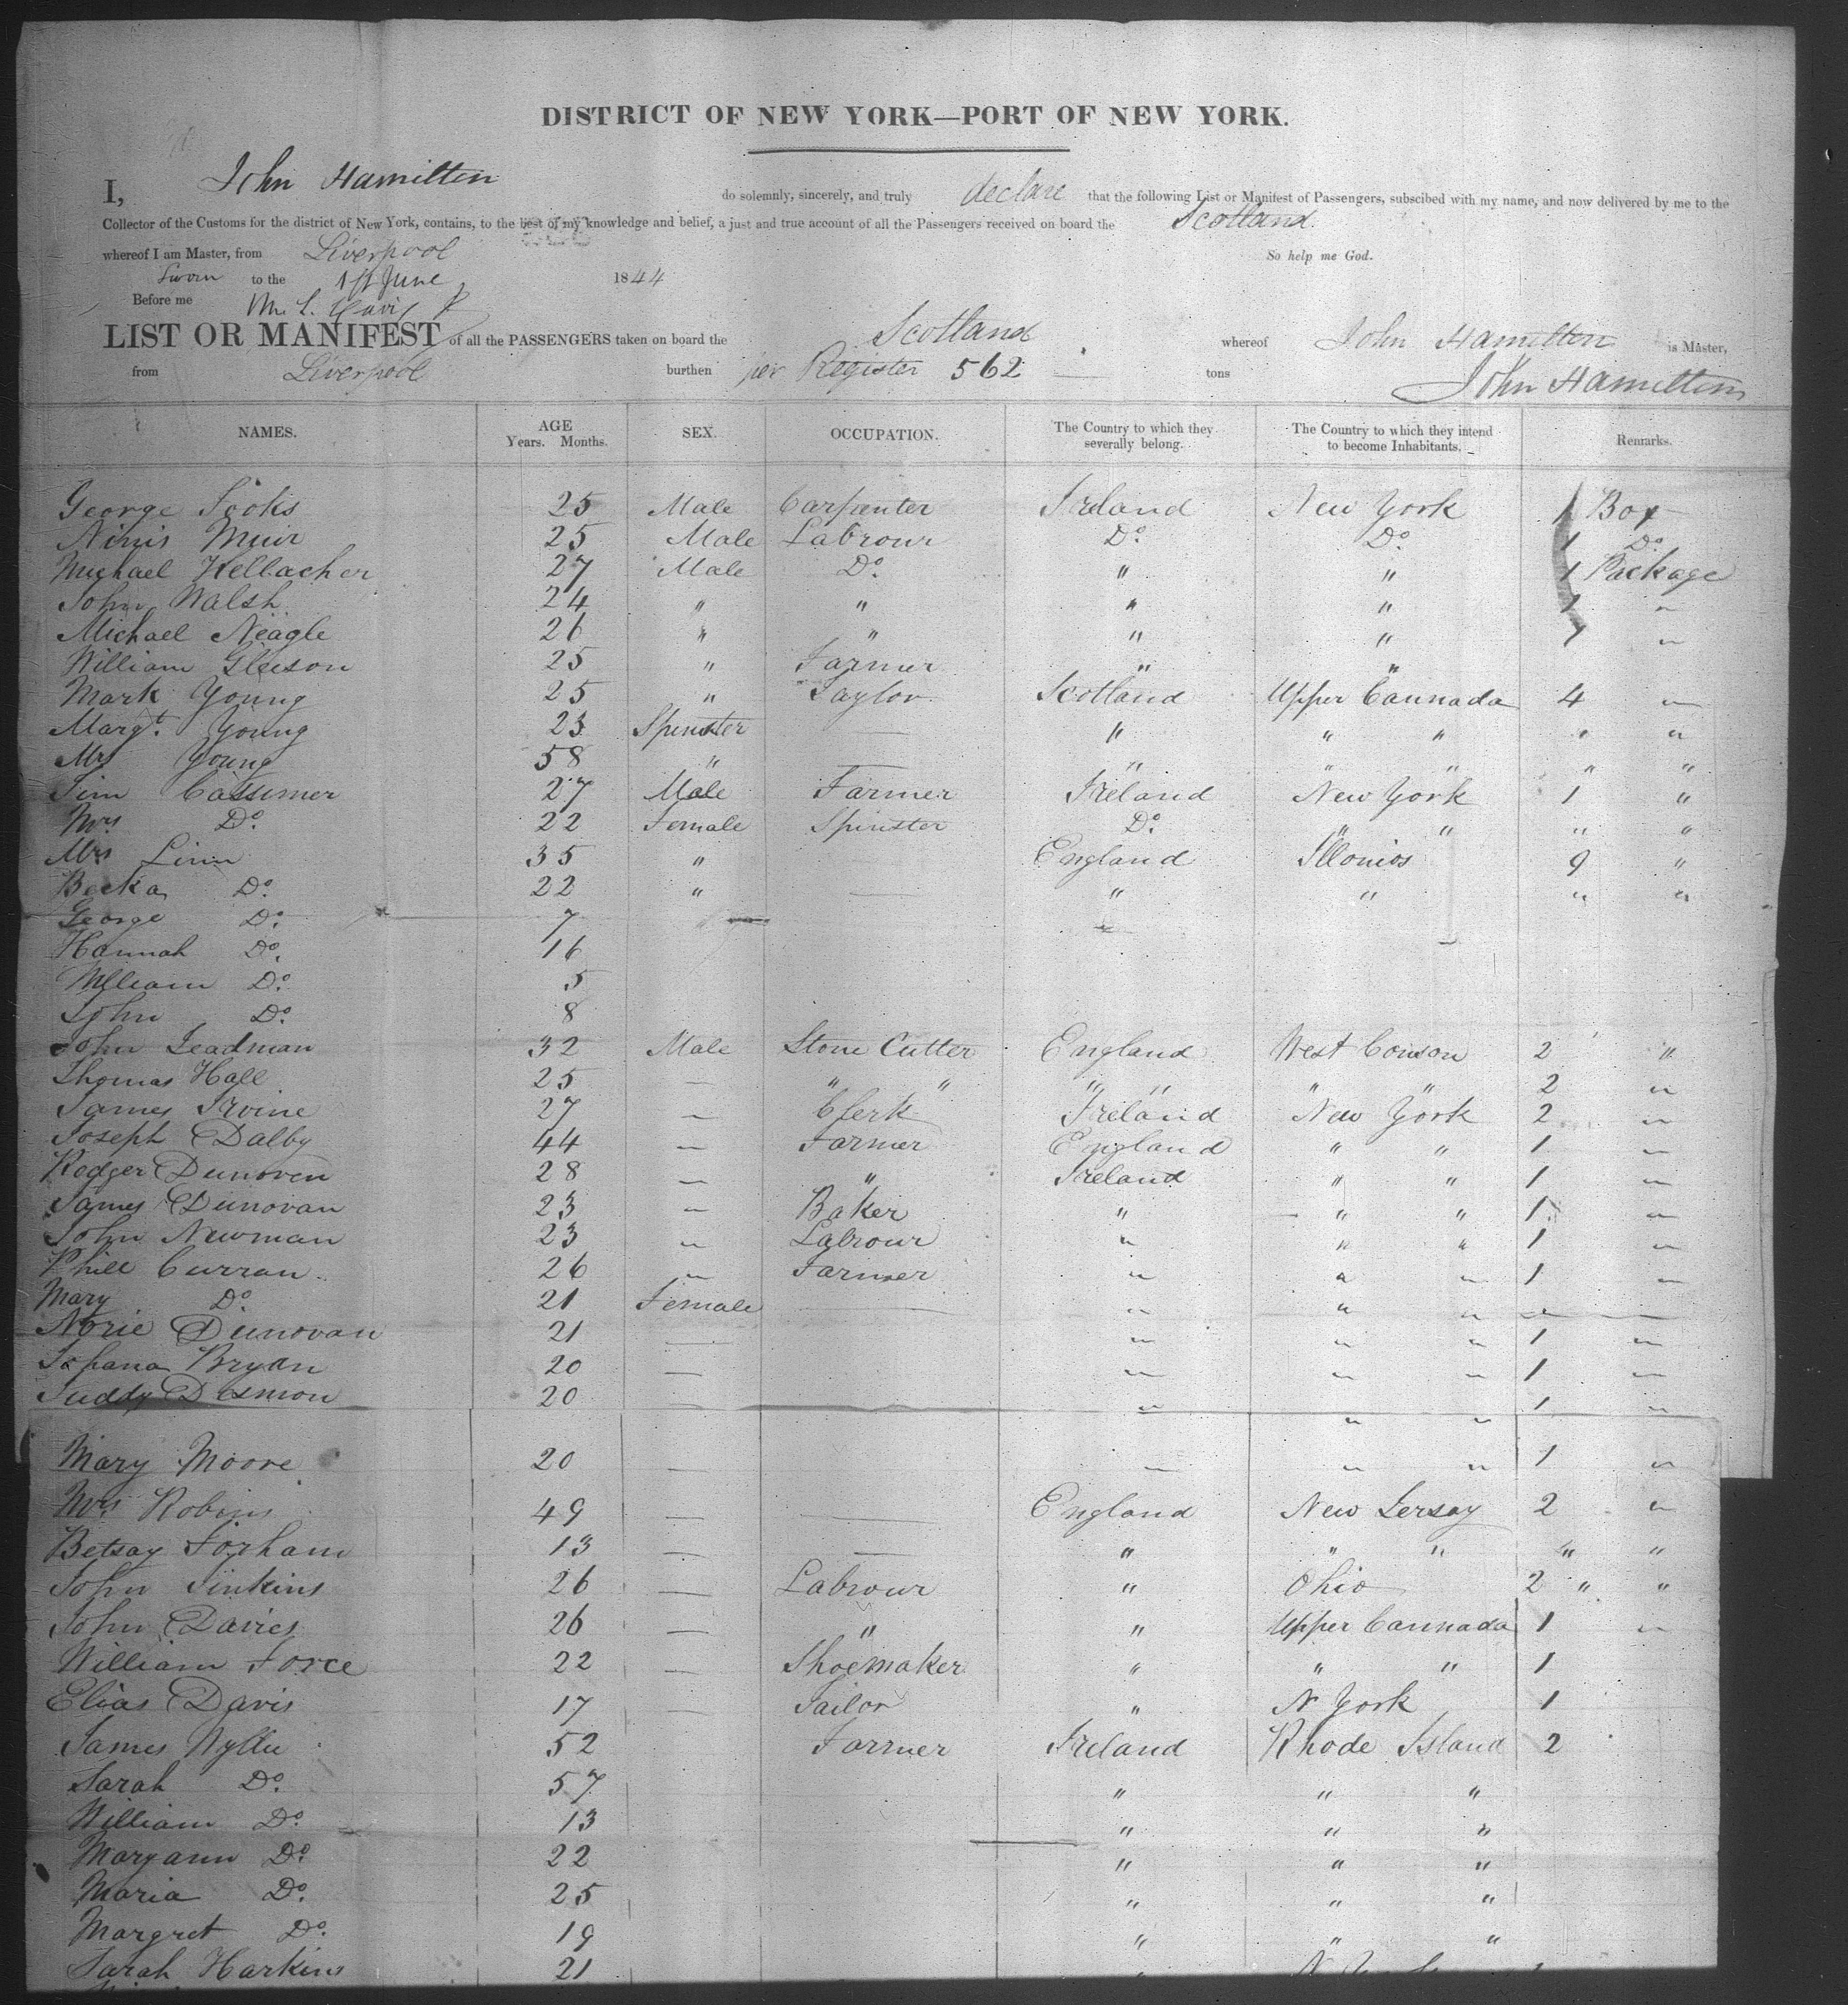 DISTRICT OF NEW YORK—PORT OF NEW YORK.
I, John Hamilton do solemnly, sincerely, and truly declare that the following List or Manifest of Passengers, subscibed with my name, and now delivered by me to the
Collector of the Customs for the district of New York, contains, to the best of my knowledge and belief, a just and true account of all the Passengers received on board the Scotland
whereof I am Master, from Liverpool So help me God.
Sworn to the 1st June 1844
Before me
LIST OR MANIFEST of all the PASSENGERS taken on board the Scotland whereof John Hamilton is Master,
from Liverpool burthen per Register 562 tons John Hamilton
NAMES. AGE Years. Months. SEX. OCCUPATION. The Country to which they severally belong. The Country to which they intend to become Inhabitants. Remarks.
George 25 Male Carpenter Ireland New York 1 Box
Muir 25 Male Labrour Do. Do. 1 Do.
Michael Kellacher 27 Male Do. " " 1 Package
John Walsh 24 " " " " 1 "
Michael Neagle 26 " " " " 1 "
William Gleeson 25 " Farmer " "
Mark Young 25 " Taylor Scotland Upper Cannada 4 "
Margt. Young 23 Spinster — " " " " "
Mrs Young 58 " — " " " " "
Jim 27 Male Farmer Ireland New York 1 "
Mrs Do. 22 Female Spinster Do. " " " "
Mrs Linn 35 " England Illonios 9 "
Becka Do. 22 " — " " " "
George Do. 7
Hannah Do. 16
William Do. 5
John Do. 8
John Leadman 32 Male Stone Cutter England West Conson 2 "
Thomas Hall 25 — " " " " " " 2 "
James Irvine 27 — Clerk Ireland New York 2 "
Joseph Dalby 44 — Farmer England " " 1 "
Rodger Dunoven 28 — " Ireland " " 1 "
James Dunovan 23 " Baker " " " 1 "
John Newman 23 " Labrour " " " 1 "
Phill Curran 26 " Farmer " " " 1 "
Mary Do. 21 Female — " " " "
Norie Dunovan 21 — " " " 1 "
Bryan 20 — " " " 1 "
Juddy 20 — " " " 1 "
Mary Moore 20 — " " " 1 "
Mrs Robins 49 — — England New Jersay 2 "
Betsay Forham 13 — — " " " " "
John Jinkins 26 — Labrour " Ohio 2 " "
John Davies 26 — " " Upper Cannada 1 "
William Force 22 — Shoemaker " " " 1
Elias Davis 17 — Tailor " N York 1
James Wyllie 52 Farmer Ireland Rhode Island 2
Sarah Do. 57 " " "
William Do. 13 " " "
Maryann Do. 22 " " "
Maria Do. 25 " " "
Margret Do. 19 " " "
Sarah Harkins 21